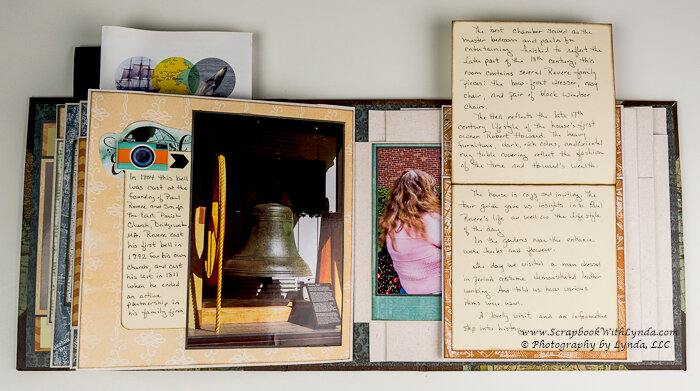 In 1804 this bell
was cast at the
foundry of Paul
Revere and Son for
The East Parish
Church, Bridgewater,
MA. Revere cast
his first bell in
1792 for his own
church, and cast
his last in 1811
when he ended
an active
partnership in
his family firm.
The best chamber served as the
master bedroom and parlor for
entertaining. Finished to reflect the
late part of the 18th century, this
room contains several Revere family
pieces: the bow front dresser, easy
chair, and pair of black Windsor
chairs.
The Hall reflects the late 17th
century lifestyle of the house's first
owner Robert Howard. The heavy
furniture, dark, rich colors, and oriental
rug table covering reflect the fashion
of the time and Howard's wealth.
The house is cozy and inviting. The
tour guides gave us insights into Paul
Revere's life as well as the lifestyle
of the day.
In the gardens near the entrance
were herbs and flowers.
The day we visited a man dressed
in period costume demonstrated leather
working. And told us how various
items were used.
A lovely visit and an informative
step into history.
www.ScrapbookWithLynda.com
© Photography by Lynda, LLC